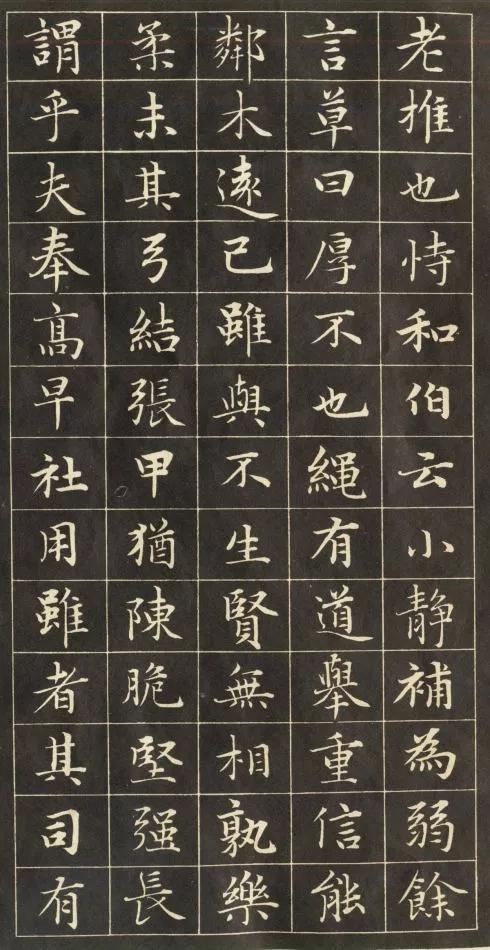 老推也恃和伯云小静補為弱餘
言草曰厚不也繩有道舉重信能
鄰木遠己雖與不生賢無相孰樂
柔未其弓結張甲猶陳脆堅强長
謂乎夫奉髙早社用雖者其司有